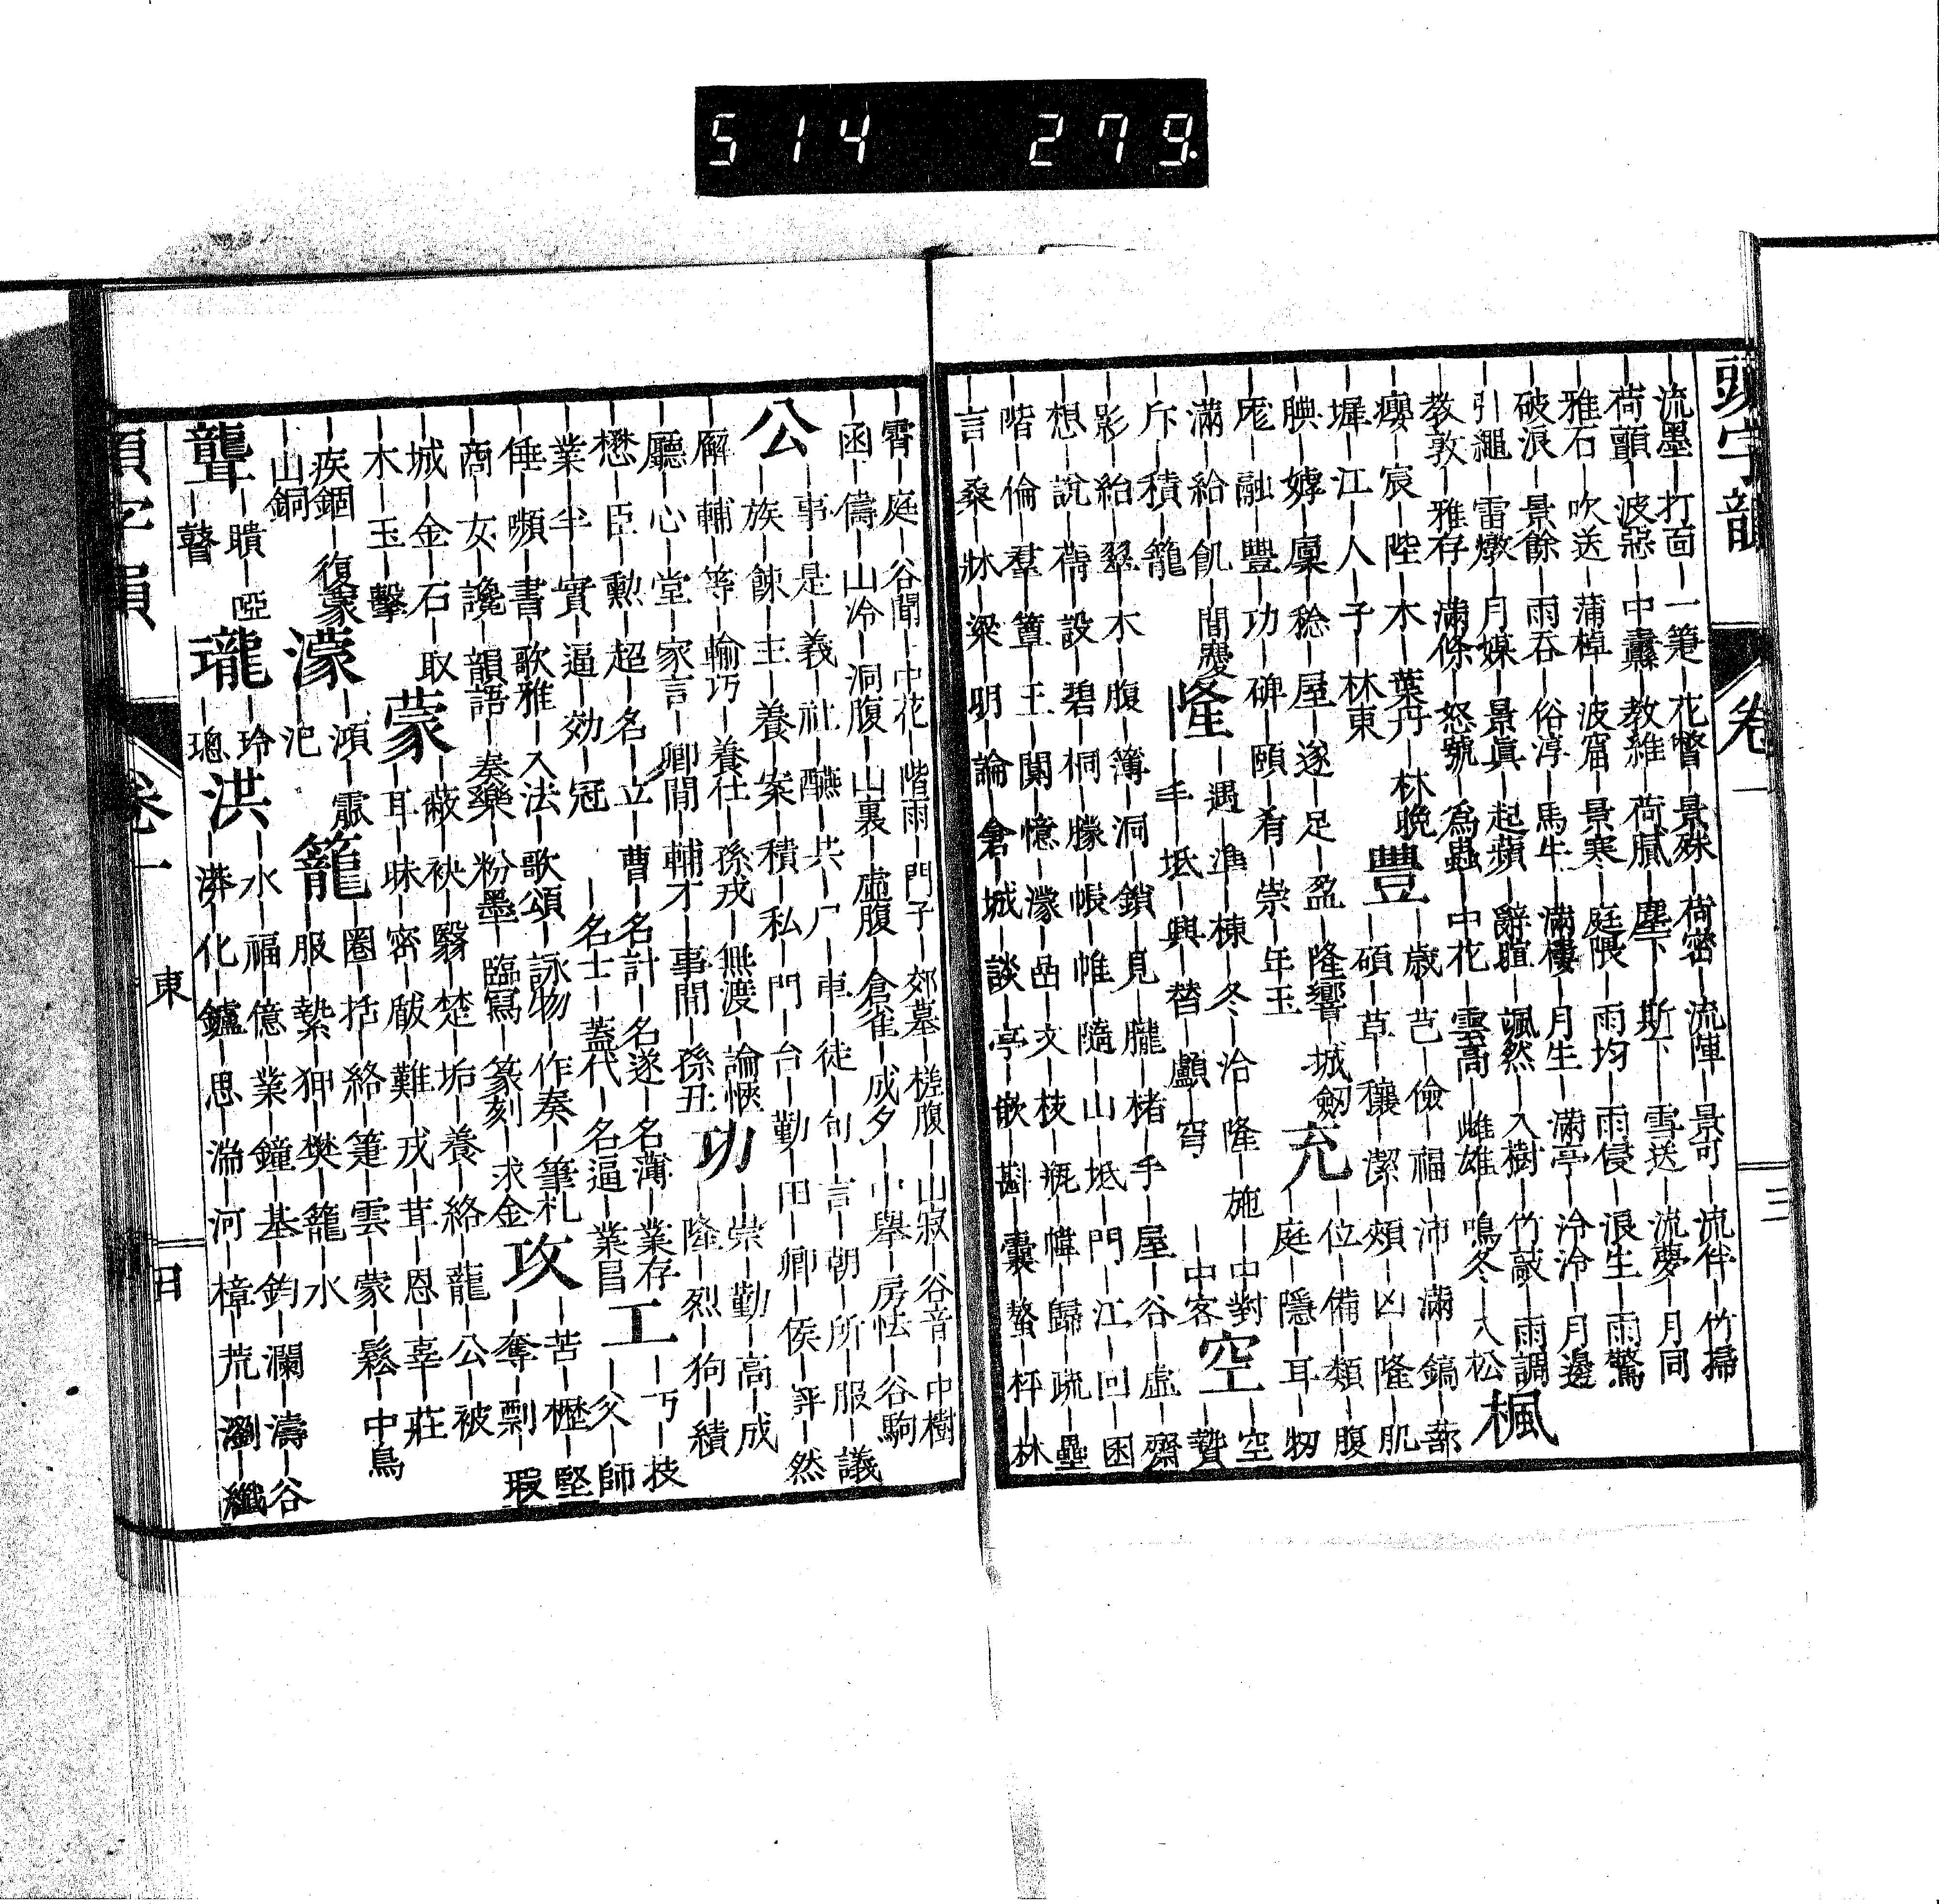 514 279
頭字韻 卷一 三
流墨｜打面｜一箑｜花瞥｜景殊｜荷密｜流陣｜景可｜流伴｜竹掃
荷顫｜波惡｜中纛｜教維｜荷膩｜塵下｜斯下｜雪送｜流夢｜月同
雅石｜吹送｜蒲棹｜波窟｜景寒｜庭隈｜雨均｜雨侵｜浪生｜雨驚
破浪｜景餘｜雨吞｜俗淳｜馬牛｜滿樓｜月生｜滿亭｜泠泠｜月邊
引繩｜雷燉｜月媒｜景眞｜起蘋｜辭暄｜颯然｜入樹｜竹敲｜雨調
教敦｜雅存｜滿條｜怒號｜爲蟲｜中花｜雲高｜雌雄｜鳴冬｜入松 楓
｜宸｜陛｜木｜葉丹｜林晚 豐｜歲｜芑｜儉｜福｜沛｜滿｜鎬｜蔀
｜墀｜江｜人｜子｜林東｜碩｜草｜穰｜潔｜頰｜凶｜隆｜肌
腆｜嫭｜廩｜稔｜屋｜遂｜足｜盈｜隆響｜城劒 充｜位｜備｜類｜腹
尨｜融｜豐｜功｜碑｜頤｜肴｜崇｜年玉｜庭｜隱｜耳｜牣
滿｜給｜飢｜間憂 隆｜遇｜準｜棟｜冬｜洽｜隆｜施｜中對 空｜空
斥｜積｜籠｜手｜坻｜興｜替｜顱｜穹｜中客｜贊
影｜紿｜翠｜木｜腹｜簿｜洞｜鎖｜見｜朧｜楮｜手｜屋｜谷｜虛｜齋
想｜說｜碧｜桐｜朦｜帳｜帷｜隨｜山｜坻｜門｜江｜回｜囷
階｜倫｜羣｜簟｜王｜闃｜憶｜濛｜文｜枝｜瓶｜幃｜歸｜疏｜壘
言｜桑｜牀｜梁｜明｜論｜倉｜城｜談｜亭｜嵌｜斟｜囊｜螯｜枰｜林
霄｜庭｜谷聞｜中花｜階雨｜門子｜郊墓｜槎腹｜山寂｜谷音｜中樹
函｜儔｜山冷｜洞腹｜山裏｜虛腹｜倉雀｜成夕｜小擧｜房怯｜谷駒
公｜事｜是｜義｜社｜醼｜共｜尸｜車｜徒｜旬｜言｜朝｜所｜服｜議
｜族｜餗｜主｜養｜案｜積｜私｜門｜台｜勤｜田｜卿｜侯｜評｜然
廨｜輔｜等｜輸巧｜養仕｜孫戎｜無渡｜論愜 功｜崇｜勤｜高｜成
廳｜心｜堂｜家言｜卿間｜輔才｜事閒｜孫丑｜隆｜烈｜狗｜績
懋｜臣｜勲｜超｜名｜立｜曹｜名計｜名遂｜名薄｜業存 工｜丂｜技
業｜半｜實｜逼｜効｜冠｜名士｜蓋代｜名逼｜業昌｜父｜師
倕｜嚬｜書｜歌雅｜入法｜歌頌｜詠物｜作奏｜筆札 攻｜苦｜櫪｜堅
商｜女｜讒｜韻語｜奏樂｜粉墨｜臨寫｜篆刻｜求金｜奪｜剽｜瑕
城｜金｜石｜取 蒙｜蔽｜袂｜翳｜楚｜垢｜養｜絡｜龍｜公｜被
木｜玉｜擊｜耳｜昧｜密｜厳｜難｜戎｜茸｜恩｜辜｜莊
疾錮｜復蒙 濛｜鴻｜霢 籠｜圈｜括｜絡｜箑｜雲｜蒙｜鬆｜中鳥
山銅｜汜｜服｜縶｜狎｜樊｜籠｜水
聾｜聵｜啞 瓏｜玲 洪｜水｜福｜億｜業｜鐘｜基｜鈞｜瀾｜濤｜谷
｜瞽｜璁｜漭｜化｜鑪｜思｜湍｜河｜樟｜荒｜瀏｜纖
頭字韻 卷一 東